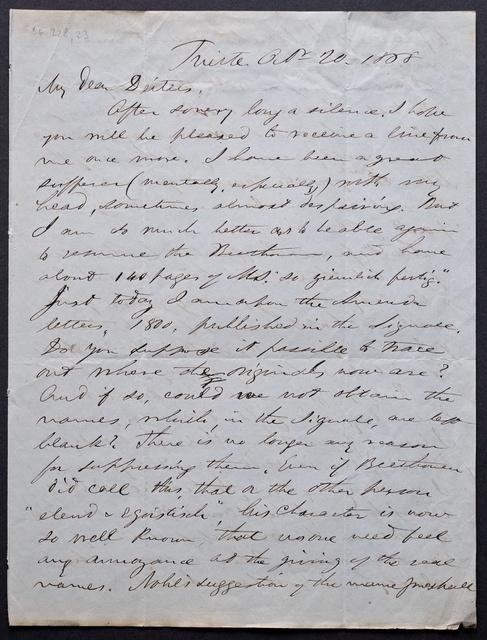 Trieste Octr 20. 1878
My Dear Deiters,
After so very long a silence, I hope
you will be pleased to receive a line from
me once more. I have been a great
sufferer (mentally, especially) with my
head, sometimes almost despairing. But
I am so much better as to be able again
to resume the Beethoven, and have
about 140 pages of Ms. "so ziemlich fertig."
Just today I am upon the Amenda
letters, 1800, published in the Signale.
Do you suppose it possible to trace
out where the originals now are?
And if so, could we not obtain the
names, which, in the Signale, are left
blank? There is no longer any reason
for suppressing them. Even if Beethoven
did call this, that or the other person
"elend & egoistisch" his character is now
so well known that no one need feel
any annoyance at the giving of the real
names. Nohl's suggestion of the name Zmeskall